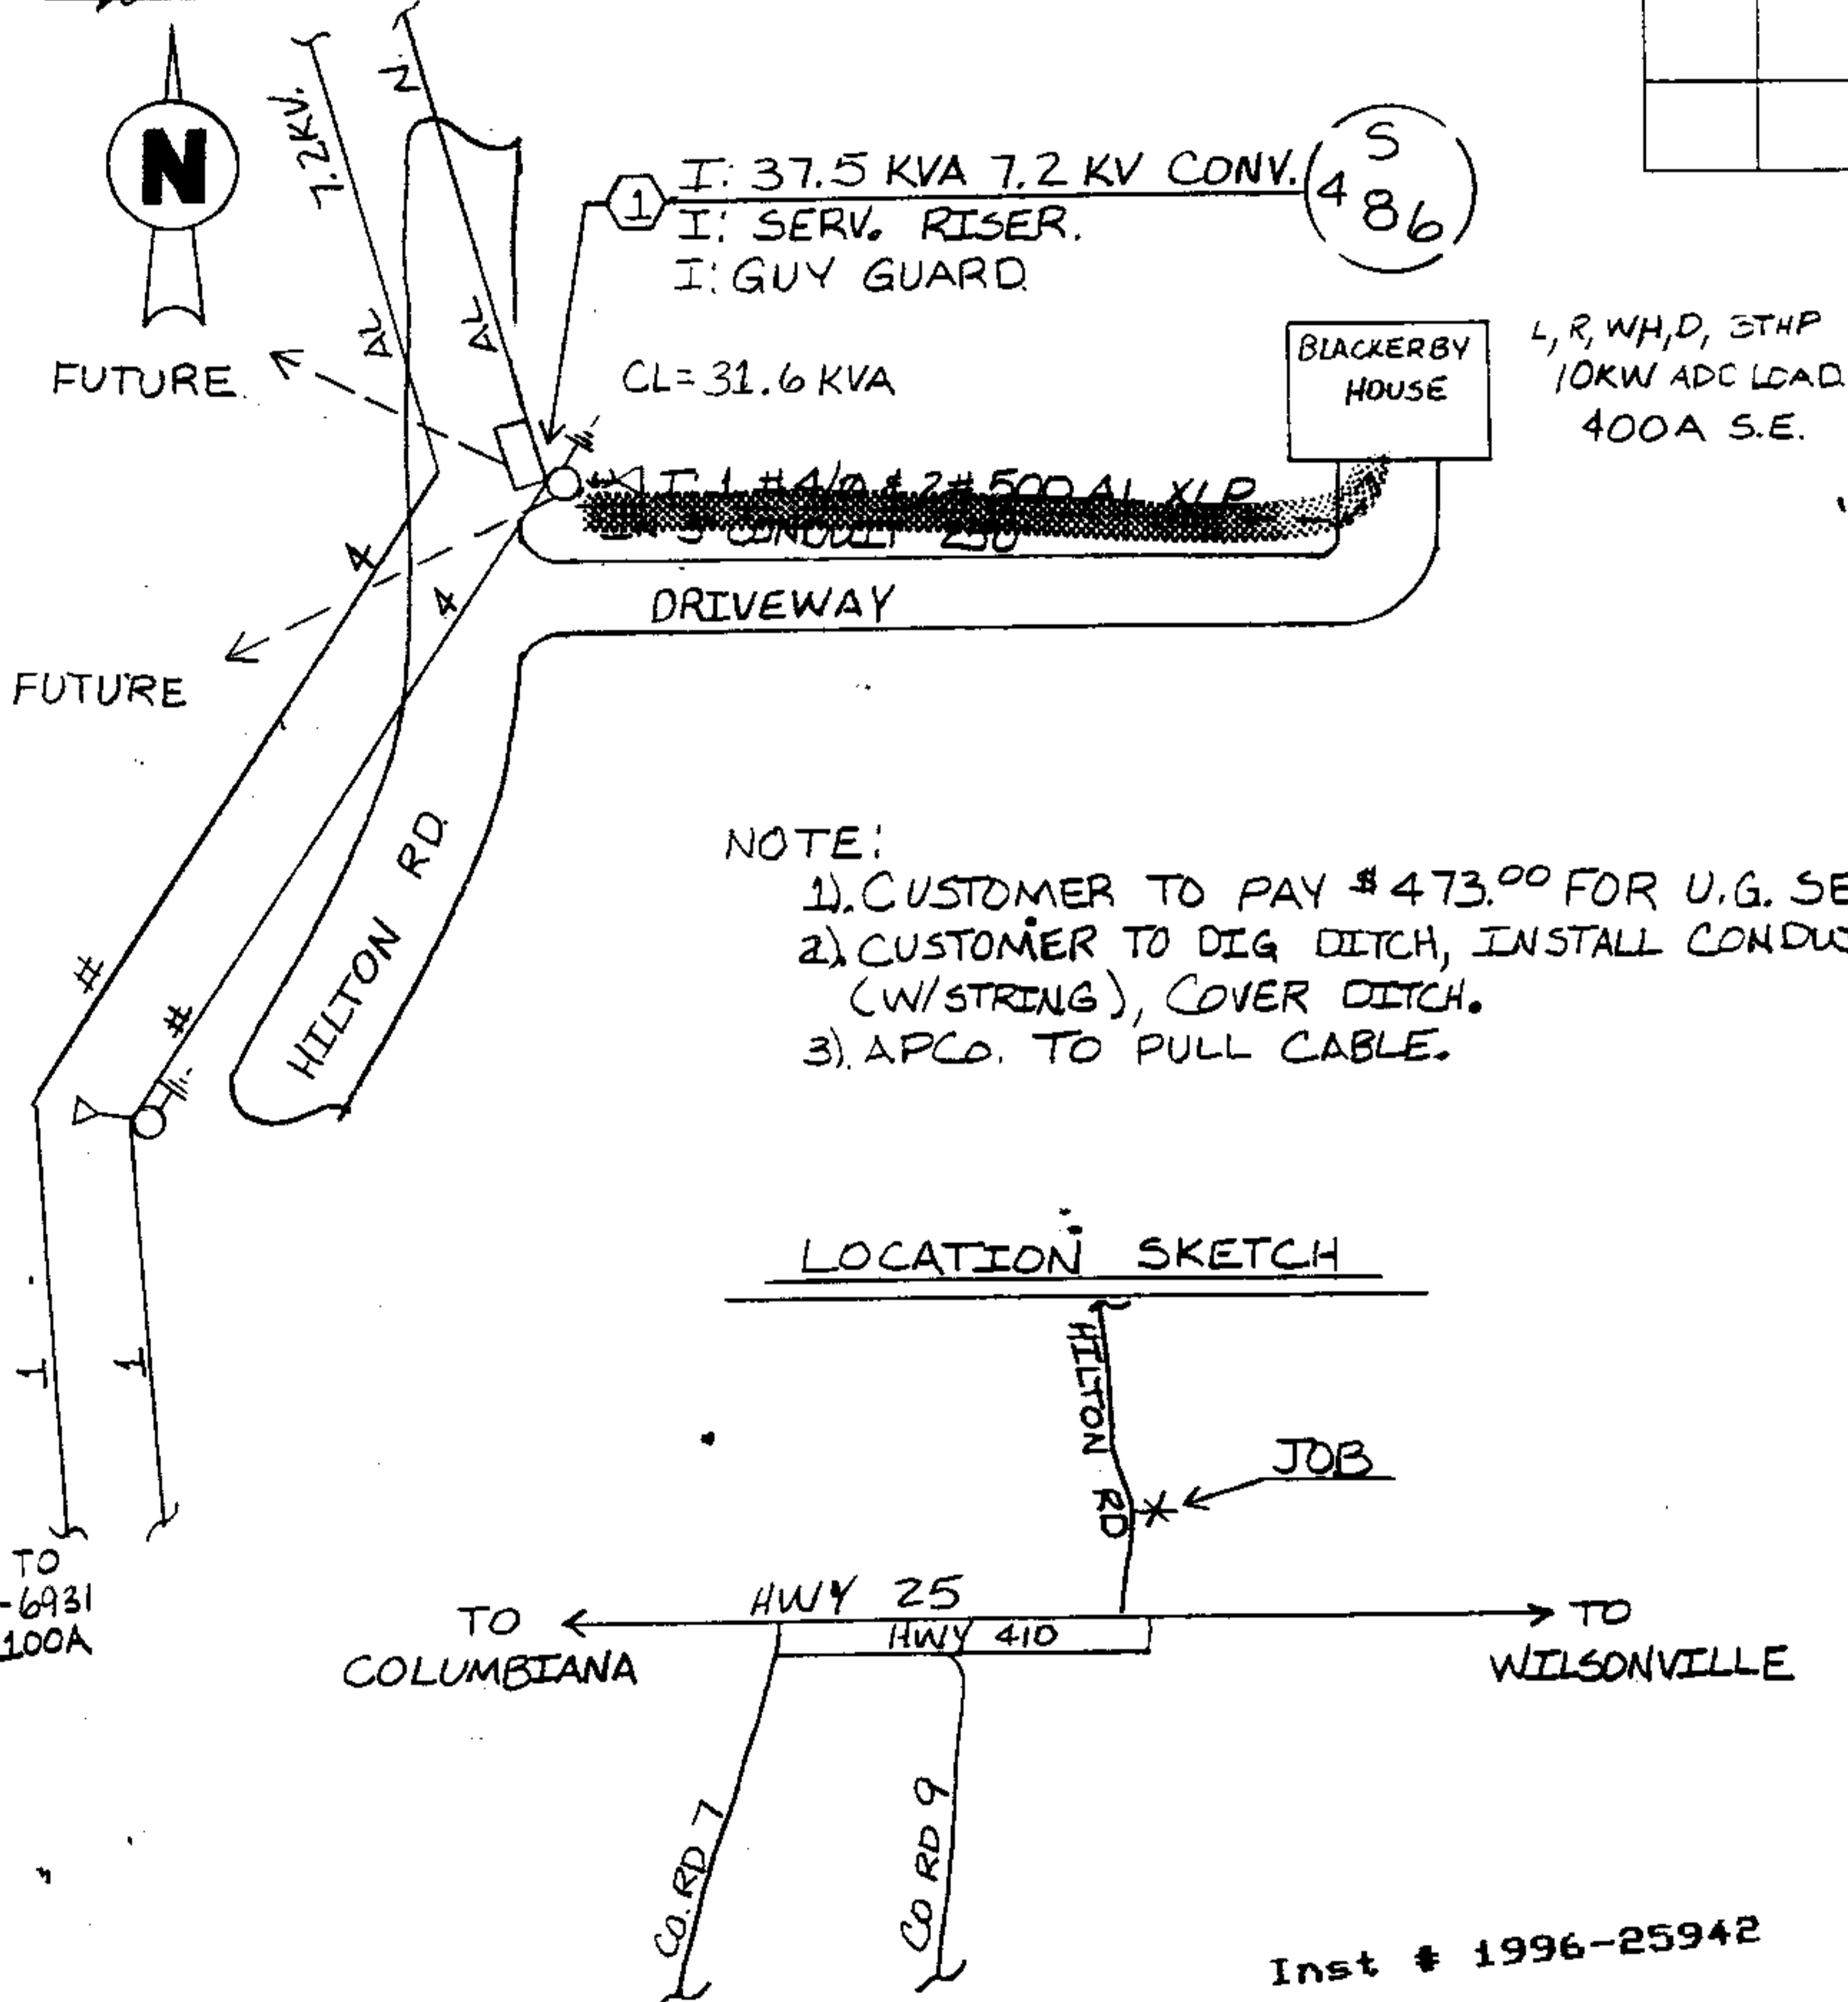 N
7.2KV.
2
I: 37.5 KVA 7.2 KV CONV.
1
I: SERV. RISER.
I: GUY GUARD.
S
486
AL
AL
FUTURE
CL = 31.6 KVA
BLACKERBY
HOUSE
L, R, WH, D, 3THP
10KW ADC LOAD
400A S.E.
I: 1 #4/0 & 2# 500 AL XLP
CONDUIT 250'
4
4
DRIVEWAY
FUTURE
HILTON RD.
#
#
NOTE:
1). CUSTOMER TO PAY $473.00 FOR U.G. SE
2). CUSTOMER TO DIG DITCH, INSTALL CONDU
(W/STRING), COVER DITCH.
3). APCO. TO PULL CABLE.
1
1
TO
-6931
100A
LOCATION SKETCH
HILTON RD
JOB
HWY 25
HWY 410
TO
COLUMBIANA
TO
WILSONVILLE
CO. RD 7
CO RD 9
Inst # 1996-25942